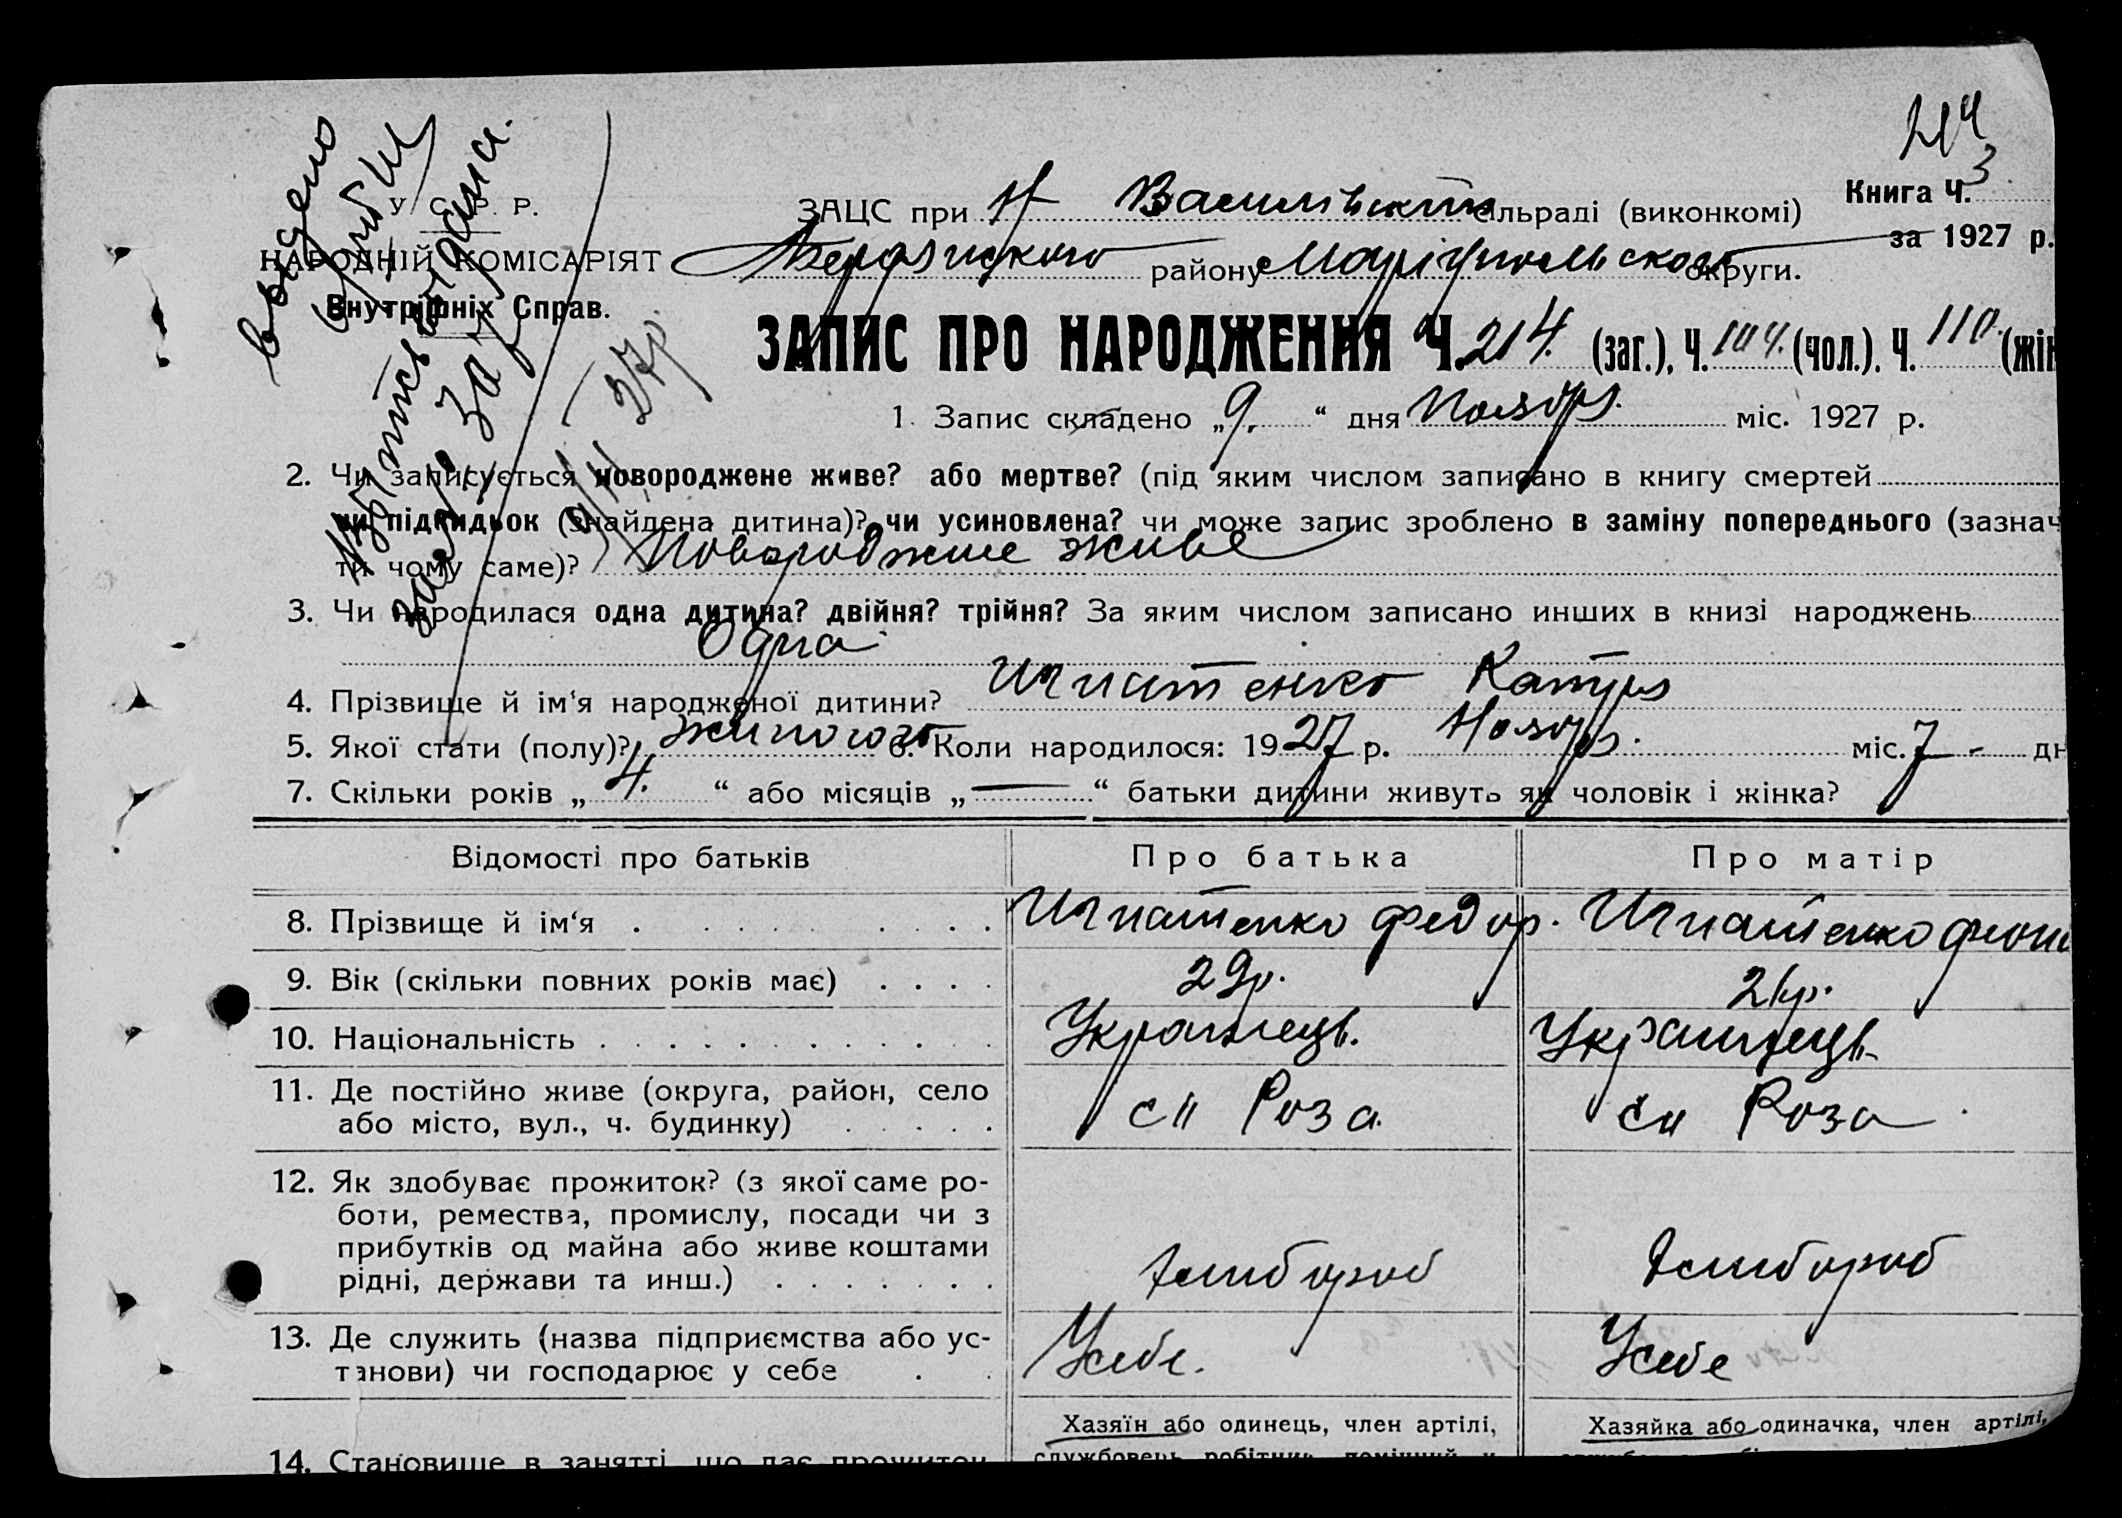 244
Книга Ч. 3
за 1927 р.
У. С. Р. Р.
НАРОДНІЙ КОМІСАРІЯТ
Внутрішніх Справ.
ЗАЦС при Н Василівські сільраді (виконкомі)
Бердянського району Маріупольского округи.
ЗАПИС ПРО НАРОДЖЕННЯ Ч. 214. (заг.), Ч. 104. (чол.). Ч. 110. (жін
1. Запис складено „9.“ дня Ноябрь міс. 1927 р.
2. Чи записується новороджене живе? або мертве? (під яким числом записано в книгу смертей
чи підкидьок (знайдена дитина)? чи усиновлена? чи може запис зроблено в заміну попереднього (зазнач
ти чому саме)? Новородженне живе
3. Чи народилася одна дитина? двійня? трійня? За яким числом записано инших в книзі народжень
Одна
4. Прізвище й ім‘я народженої дитини? Игнатенко Катря
5. Якої стати (полу)? жиночого 6. Коли народилося: 1927 р. Ноябрь. міс. 7 - дн
7. Скільки років „4.“ або місяців „—“ батьки дитини живуть як чоловік і жінка?
Відомості про батьків Про батька Про матір
8. Прізвище й ім‘я Игнатенко Федор. Игнатенко
9. Вік (скільки повних років має) 29р. 21р.
10. Національність Украинець. Украинець
11. Де постійно живе (округа, район, село
або місто, вул., ч. будинку) сп Роза. сп Роза
12. Як здобуває прожиток? (з якої саме ро-
боти, ремества, промислу, посади чи з
прибутків од майна або живе коштами
рідні, держави та инш.) хлибороб хлибороб
13. Де служить (назва підприємства або ус-
танови) чи господарює у себе Усебе. Усебе
Хазяїн або одинець, член артілі, Хазяйка або одиначка, член артілі,
14. Становище в занятті, що дає прожиток службовець, робітник, помічний у